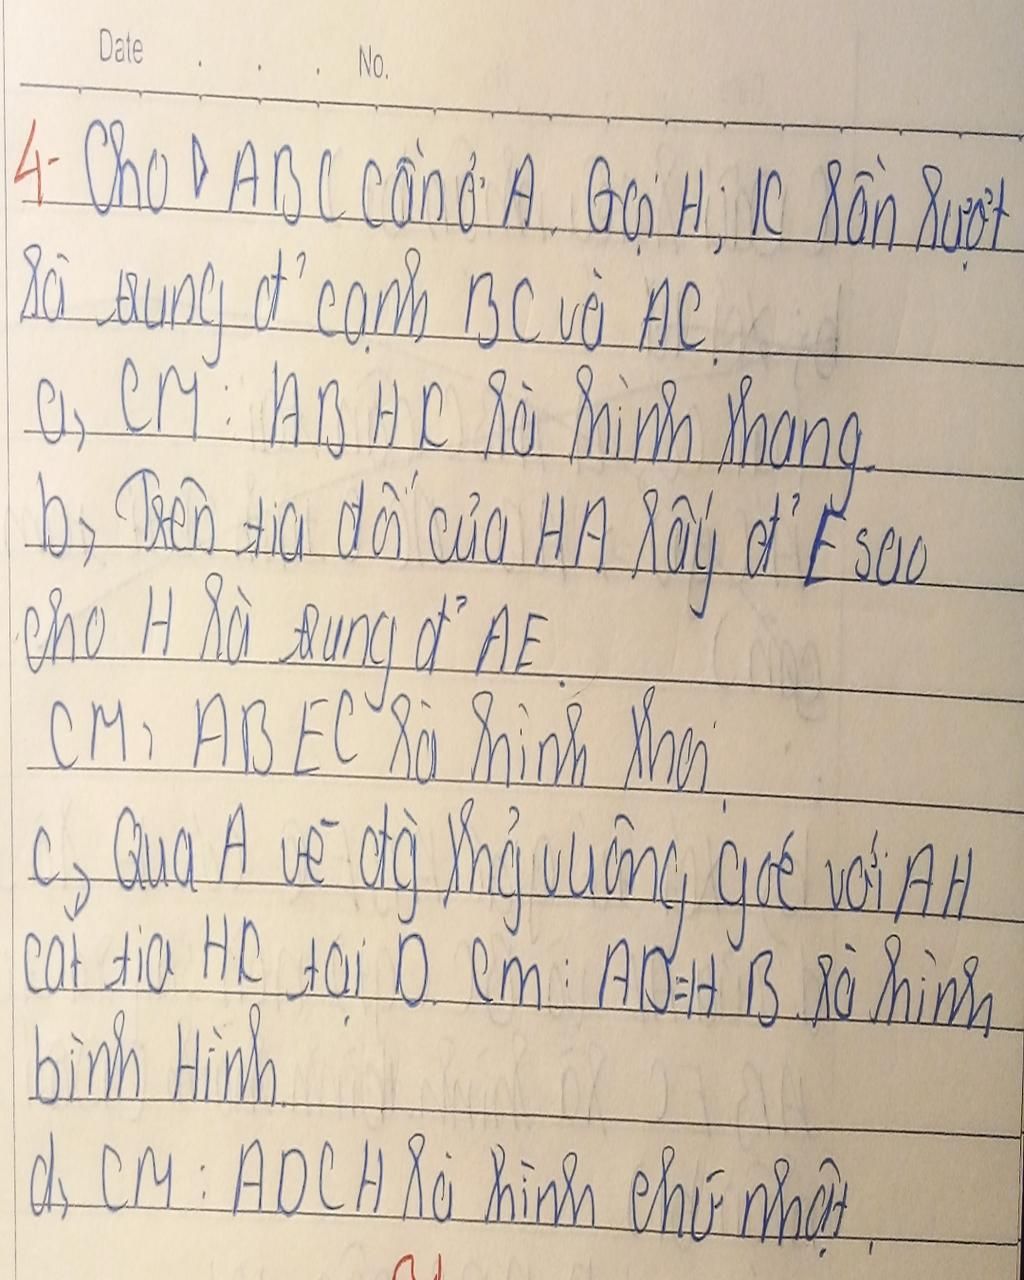 Date . . . No.
4- Cho Δ ABC cân ở A. Gọi H, K lần lượt
là trung đ' cạnh BC và AC.
a, CM: ABHK là hình thang.
b, Trên tia đối của HA lấy đ' E sao
cho H là trung đ' AE.
CM, ABEC là hình thoi.
c, Qua A vẽ đg thg vuông góc với AH
cắt tia HK tại D. Cm: AD=HB là hình
bình Hình.
d, CM: ADCH là hình chữ nhật.